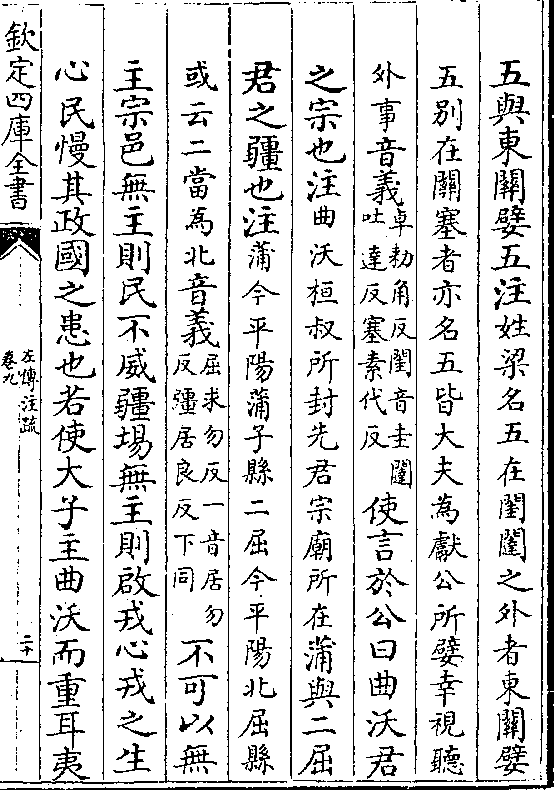 五與東關嬖五注姓梁名五在閨闥之外者東關嬖
五別在關塞者亦名五皆大夫為獻公所嬖幸視聽
外事音義卓勑角反閨音圭闥
吐達反塞素代反
使言於公曰曲沃君
之宗也注曲沃桓叔所封先君宗廟所在蒲與二屈
君之疆也注蒲今平陽蒲子縣二屈今平陽北屈縣
或云二當為北音義屈求勿反一音居勿
反疆居良反下同
不可以無
主宗邑無主則民不威疆埸無主則啟戎心戎之生
心民慢其政國之患也若使大子主曲沃而重耳夷
欽定四庫全書
左傳注疏
卷九
二十